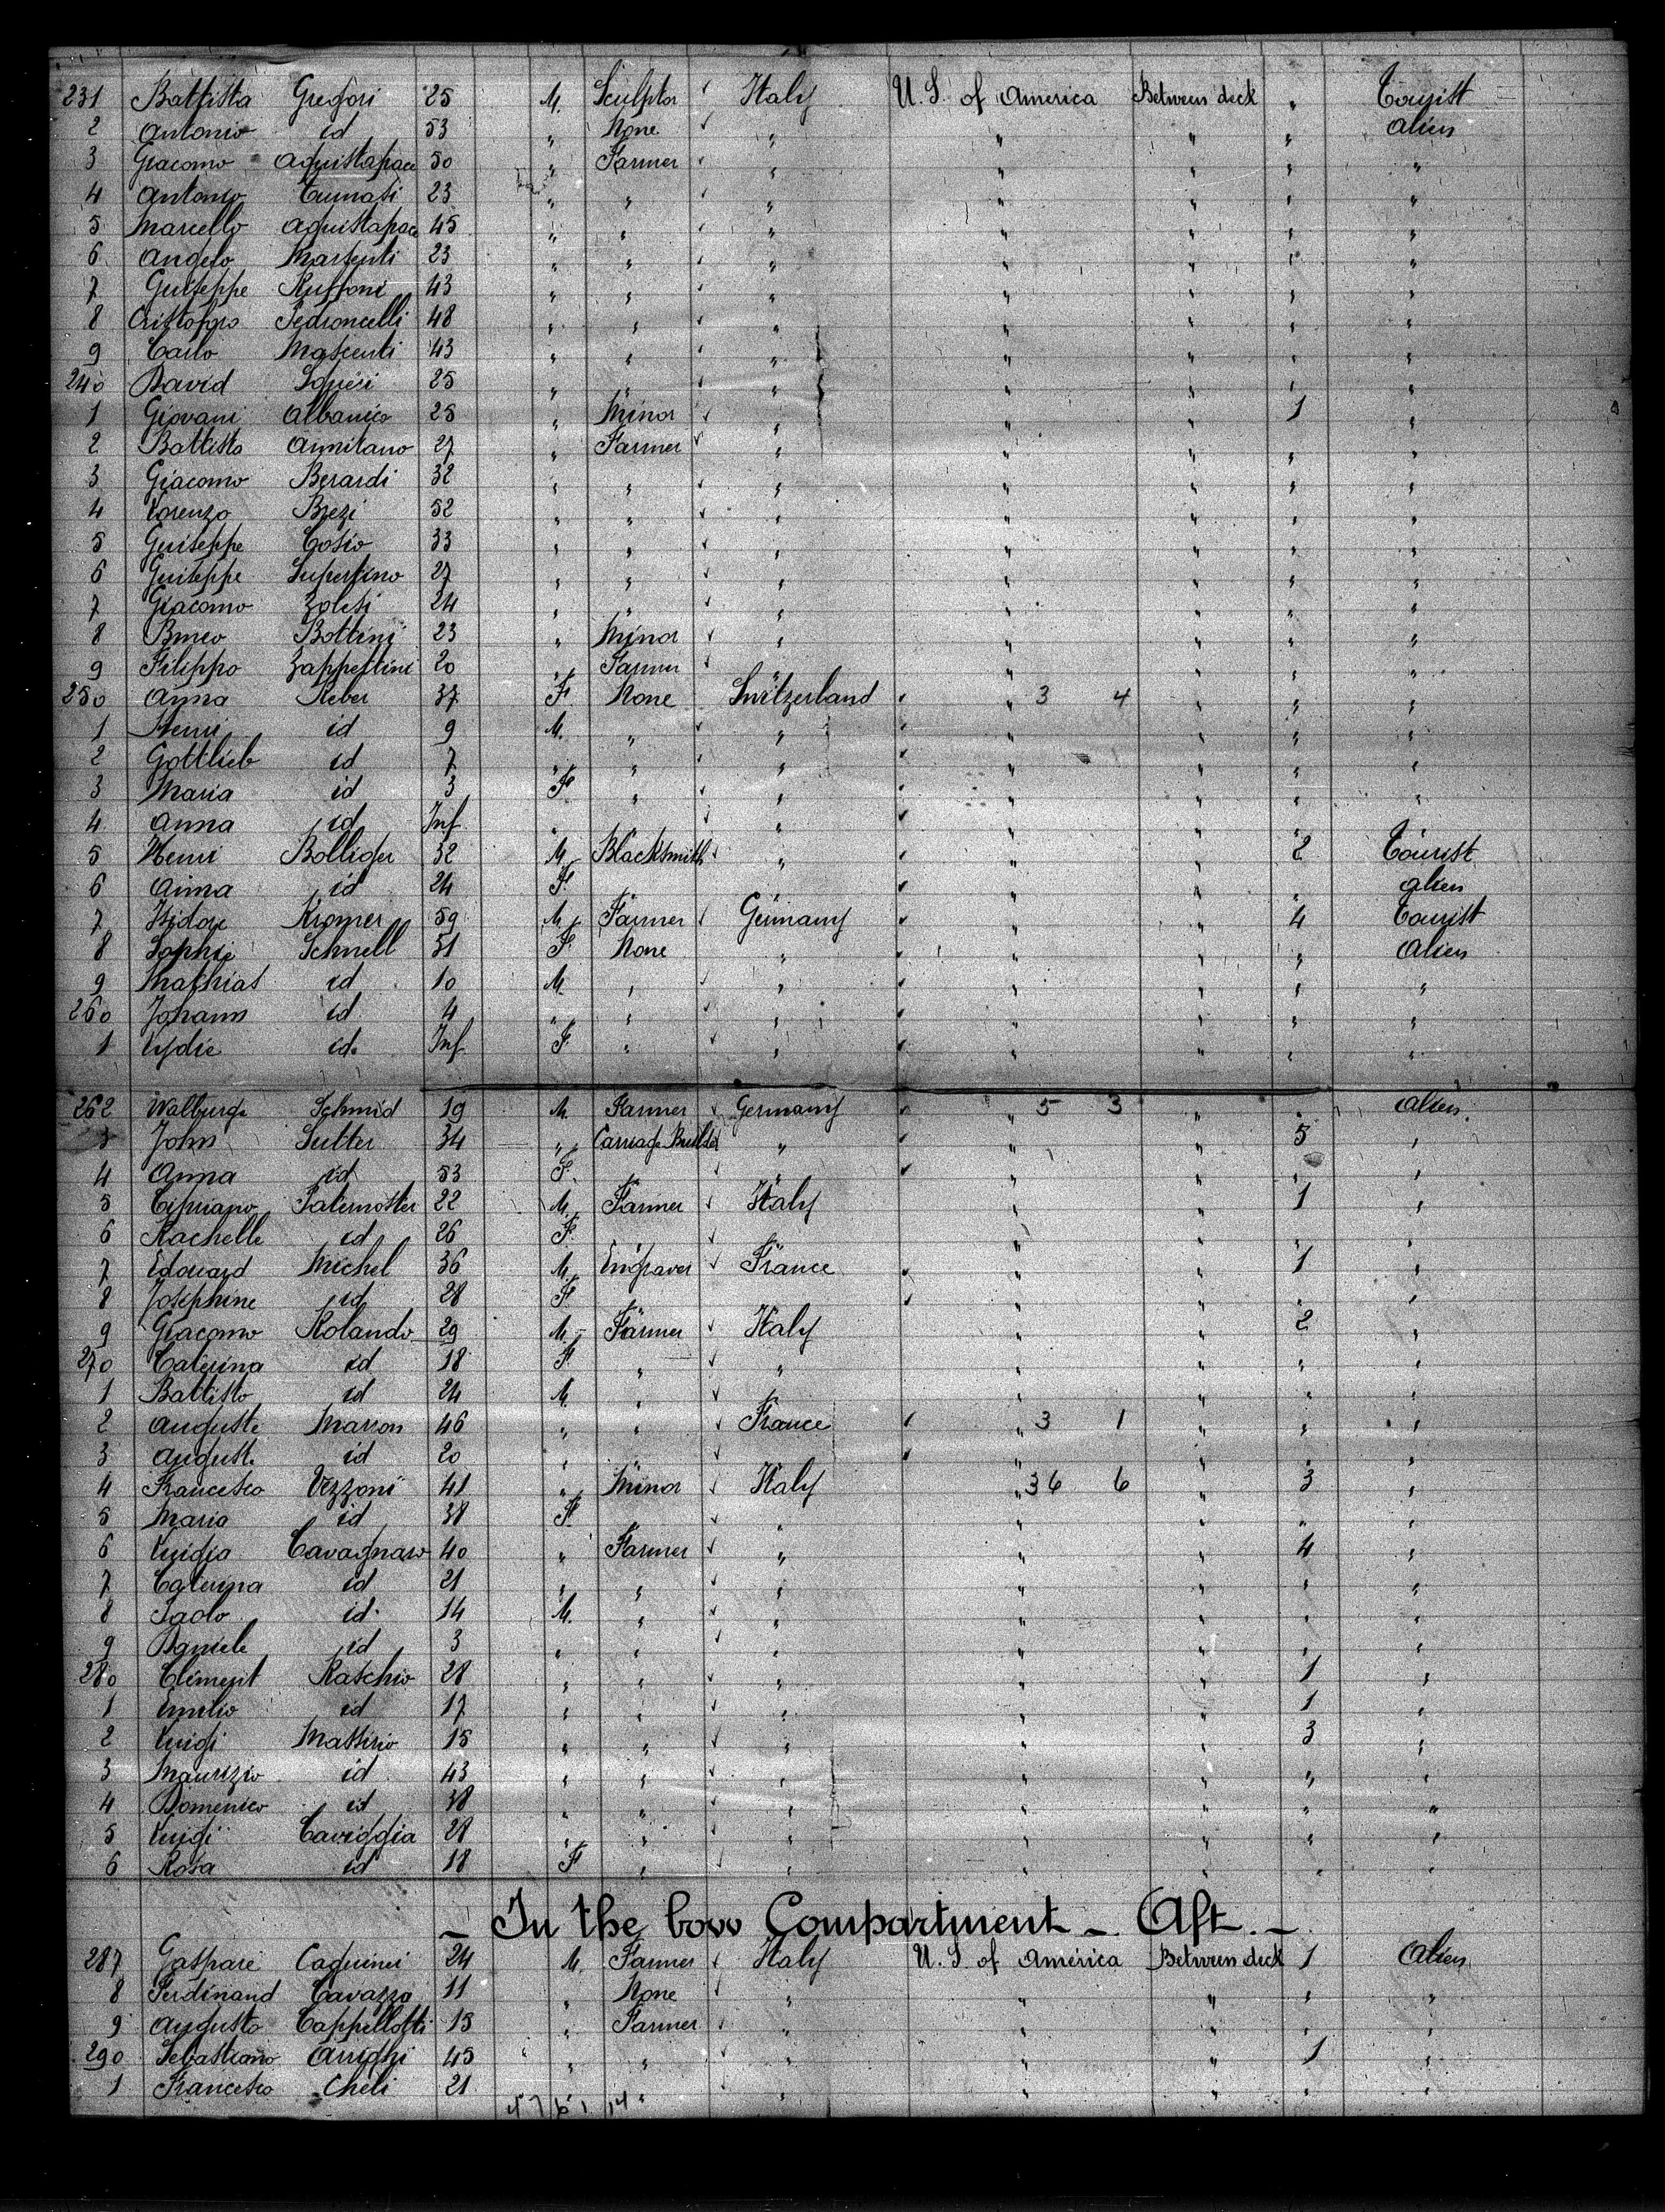 231 Battista Gregori 25 M. Sculptor Italy U. S. of America Between deck " Tourist
2 Antonio id 53 " None " " " " Alien
3 Giacomo Aquistapace 50 " Farmer " " " " "
4 Antonio 23 " " " " " " "
5 Marcello Aquistapace 45 " " " " " " "
6 Angelo 23 " " " " " " "
7 Guiseppe Ruffoni 43 " " " " " " "
8 Cristoforo Pedroncelli 48 " " " " " " "
9 Carlo Mascenti 43 " " " " " " "
240 David 25 " " " " " " "
1 Giovani Albanico 28 " Minor " " " 1 "
2 Battista Annitano 27 " Farmer " " " " "
3 Giacomo Berardi 32 " " " " " " "
4 Lorenzo Brezi 52 " " " " " " "
5 Guiseppe Cosio 33 " " " " " " "
6 Guiseppe Supertino 27 " " " " " " "
7 Giacomo Zolesi 24 " " " " " " "
8 Bottini 23 " Minor " " " " "
9 Filippo Zappettini 20 " Farmer " " " " "
250 Anna Reber 37 F. None Switzerland " 3 4 " " "
1 Henri id 9 M. " " " " " "
2 Gottlieb id 7 " " " " " " "
3 Maria id 3 F. " " " " " "
4 Anna id Inf " " " " " " "
5 Henri Bolliger 32 M. Blacksmith " " " 2 Tourist
6 Anna id 24 F. " " " " " Alien
7 Isidore Kromer 59 M. Farmer Germany " " 4 Tourist
8 Sophie Schnell 31 F. None " " " " Alien
9 Mathias id 10 M. " " " " " "
260 Johann id 4 " " " " " " "
1 Lydie id. Inf F. " " " " " "
262 Walburge Schmid 19 M. Farmer Germany 5 3 " " Alien
3 John Sutter 34 " Carriage Builder " " " 5 "
4 Anna id 53 F. " " " " " "
5 Cipriano Paternoster 22 M. Farmer Italy " " 1 "
6 Rachelle id 26 F. " " " " " "
7 Edouard Michel 36 M. Engraver France " " 1 "
8 Josephine id 28 F. " " " " " "
9 Giacomo Rolando 29 M. Farmer Italy " " 2 "
270 Caterina id 18 F. " " " " " "
1 Battisto id 24 M. " " " " "
2 Auguste Marron 46 " " France " 3 1 " " "
3 August. id 20 " " " " " "
4 Francesco Vezzoni 41 " Minor Italy " 36 6 " 3 "
5 Maria id 38 F. " " " " "
6 Luigia Cavagnaro 40 " Farmer " " " 4 "
7 Caterina id 21 " " " " " " "
8 Paolo id. 14 M. " " " " " "
9 Daniele id 3 " " " " " " "
280 Clement Raschio 28 " " " " " 1 "
1 Emilio id 17 " " " " " 1 "
2 Luigi Massirio 15 " " " " " 3 "
3 Maurizio id 43 " " " " " " "
4 Domenico id 38 " " " " " " "
5 Luigi Caviggia 28 " " " " " " "
6 Rosa id 18 F " " " " " "
- In the bow Compartment - Aft. -
287 Gaspare 24 M. Farmer Italy U. S. of America Between deck 1 Alien
8 Ferdinand Cavazza 11 " None " " " " "
9 Augusto Cappellotti 13 " Farmer " " " " "
290 Sebastiano Arrighi 45 " " " " " 1 "
1 Francesco Cheli 21 " " " " " "